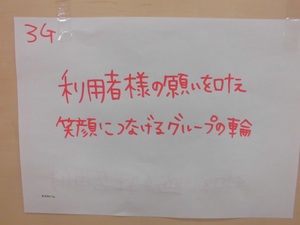 3G
利用者様の願いを叶え
笑顔につなげるグループの輪